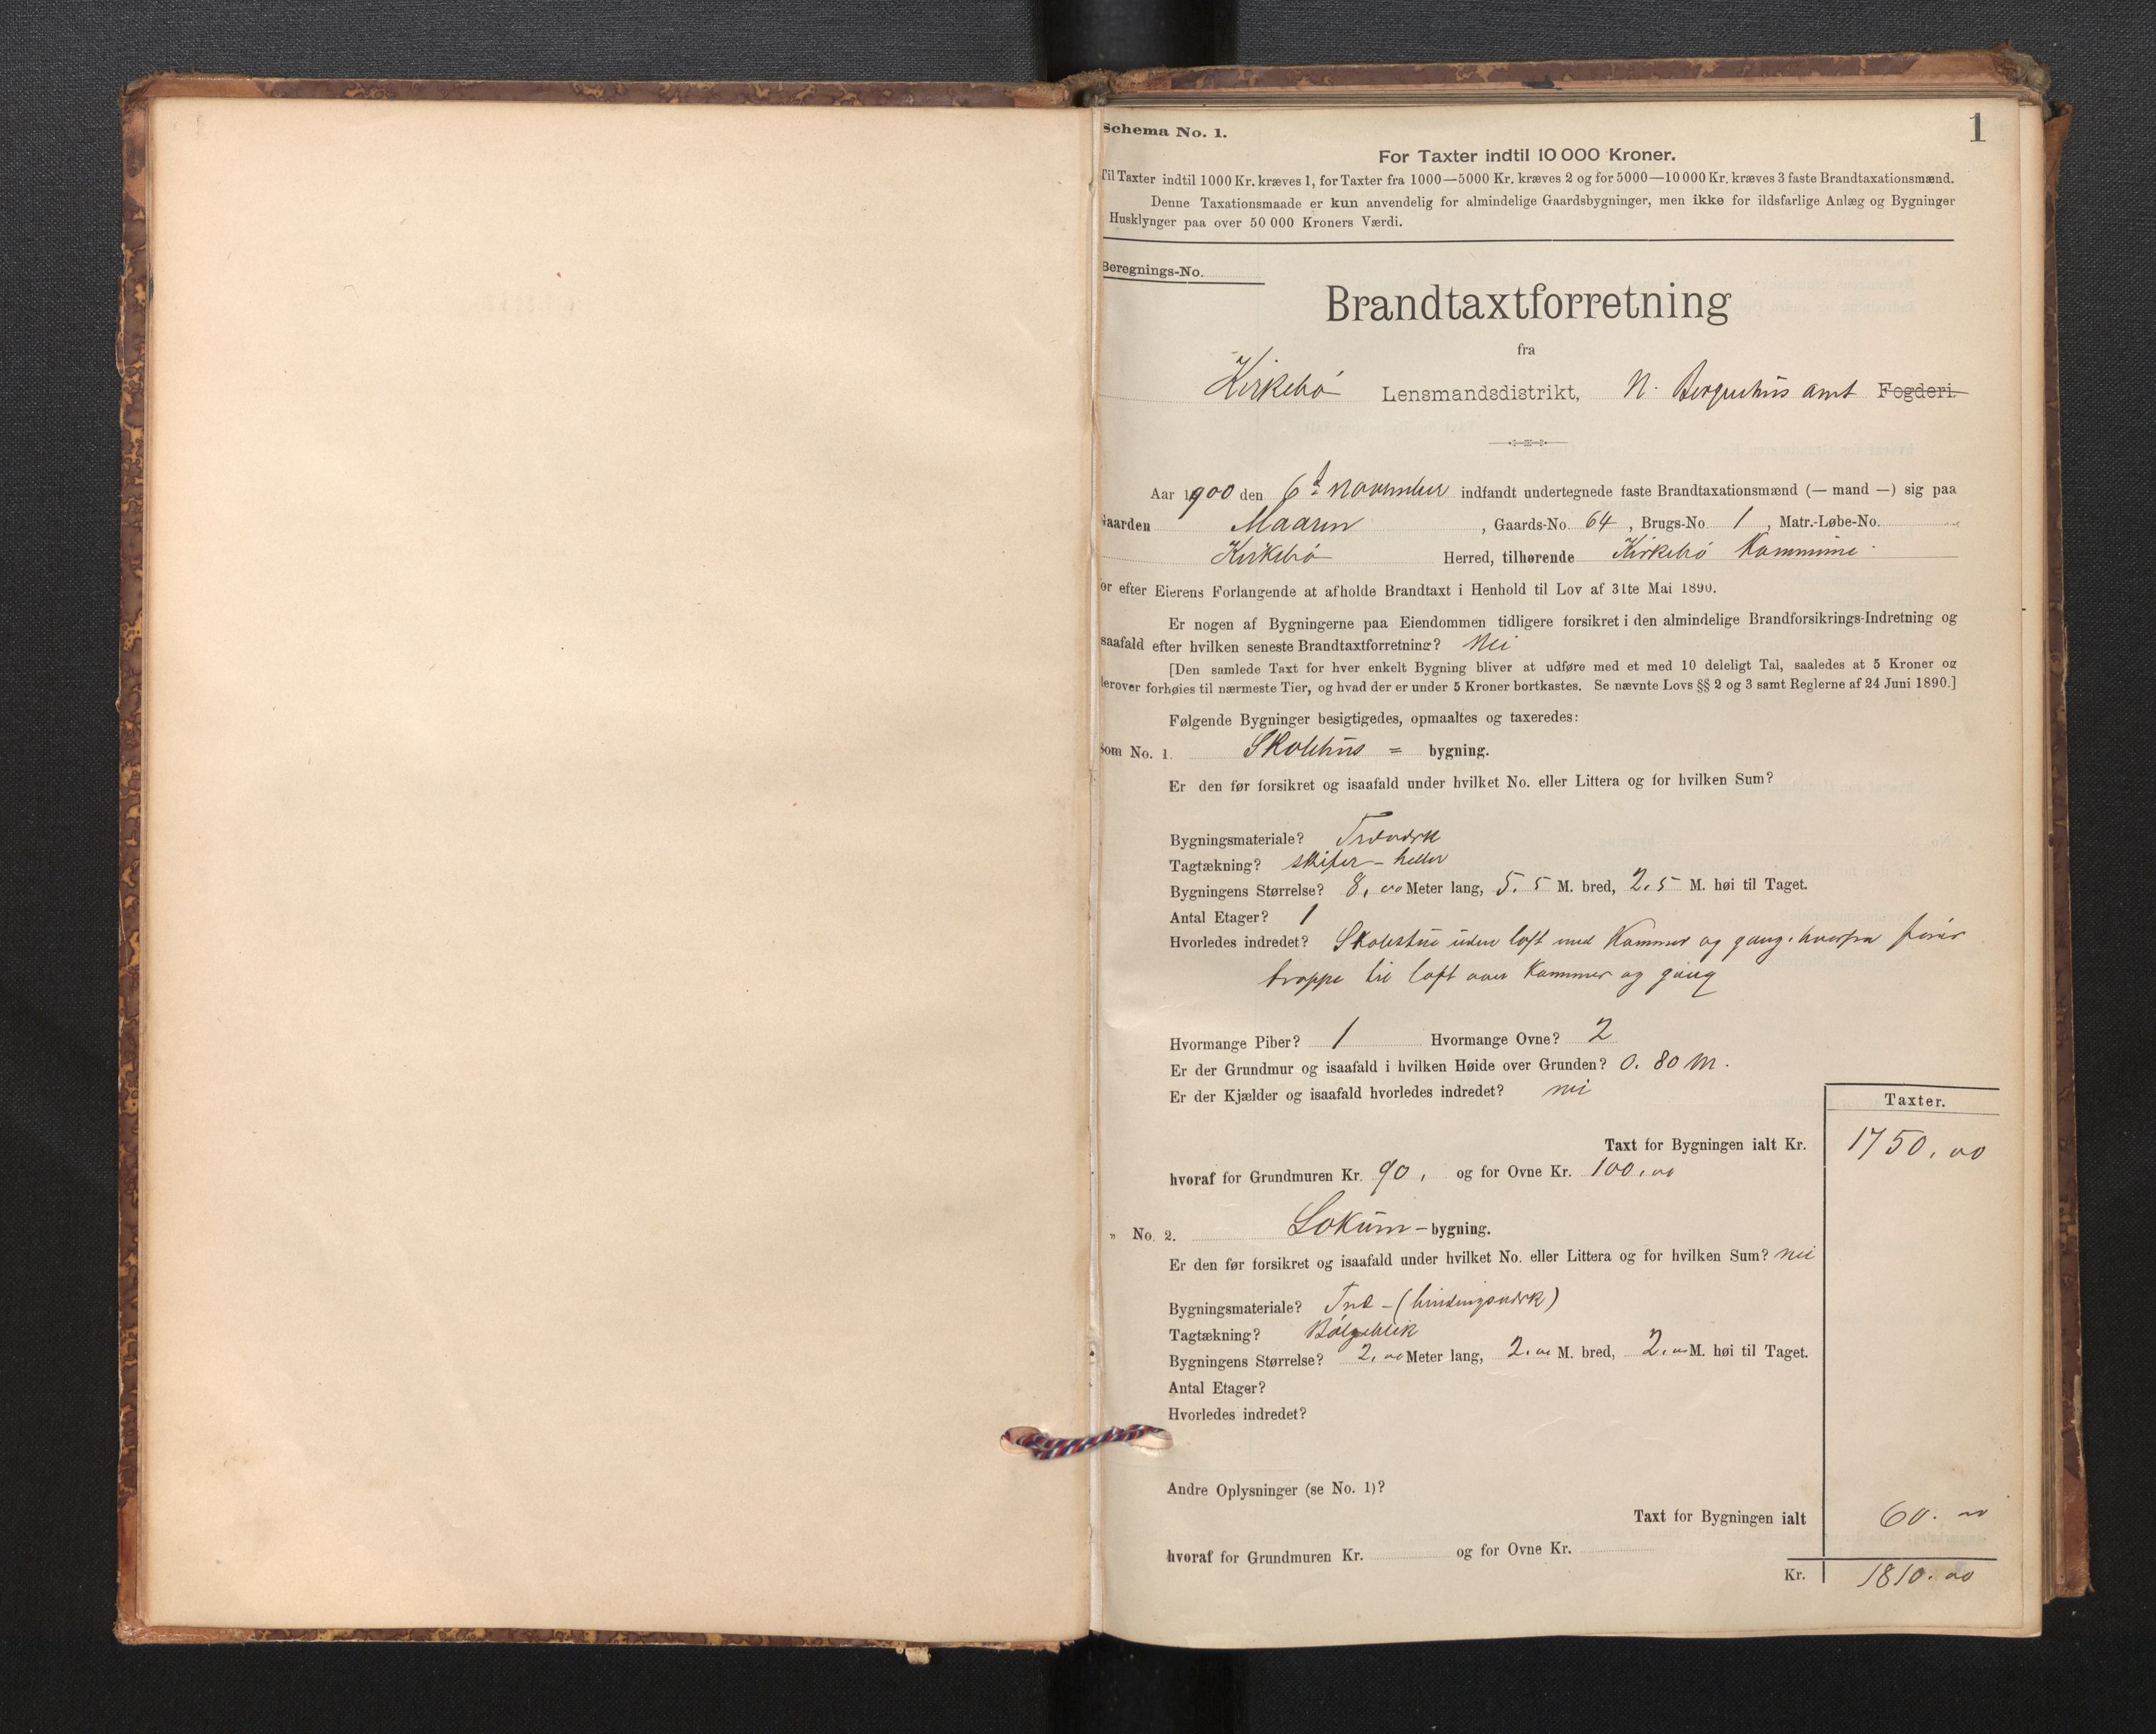 1
Schema No. 1.
For Taxter indtil 10 000 Kroner.
Til Taxter indtil 1000 Kr. kræves 1, for Taxter fra 1000—5000 Kr. kræves 2 og for 5000—10 000 Kr. kræves 3 faste Brandtaxationsmænd.
Denne Taxationsmaade er kun anvendelig for almindelige Gaardsbygninger, men ikke for ildsfarlige Anlæg og Bygninger
Husklynger paa over 50 000 Kroners Værdi.
Beregnings-No.
Brandtaxtforretning
fra
Kirkebø Lensmandsdistrikt, N. Bergenhus amt Fogderi.
Aar 1900 den 6t november indfandt undertegnede faste Brandtaxationsmænd (— mand —) sig paa
Gaarden Maaren, Gaards-No. 64, Brugs-No. 1, Matr.-Løbe-No.
Kirkebø Herred, tilhørende Kirkebø Kommune.
for efter Eierens Forlangende at afholde Brandtaxt i Henhold til Lov af 31te Mai 1890.
Er nogen af Bygningerne paa Eiendommen tidligere forsikret i den almindelige Brandforsikrings-Indretning og
saafald efter hvilken seneste Brandtaxtforretning? Nei
[Den samlede Taxt for hver enkelt Bygning bliver at udføre med et med 10 deleligt Tal, saaledes at 5 Kroner og
derover forhøies til nærmeste Tier, og hvad der er under 5 Kroner bortkastes. Se nævnte Lovs §§ 2 og 3 samt Reglerne af 24 Juni 1890.]
Følgende Bygninger besigtigedes, opmaaltes og taxeredes:
Som No. 1. Skolehus = bygning.
Er den før forsikret og isaafald under hvilket No. eller Littera og for hvilken Sum?
Bygningsmateriale? Træværk
Tagtækning? skifer - heller
Bygningens Størrelse? 8,00 Meter lang, 5.5 M. bred, 2.5 M. høi til Taget.
Antal Etager? 1
Hvorledes indredet? Skolestue uden loft med Kammer og gang. hvorfra fører
trappe til loft over Kammer og gang
Hvormange Piber? 1 Hvormange Ovne? 2
Er der Grundmur og isaafald i hvilken Høide over Grunden? 0.80 m.
Er der Kjælder og isaafald hvorledes indredet? nei
Taxter.
Taxt for Bygningen ialt Kr. 1750,00
hvoraf for Grundmuren Kr. 90, og for Ovne Kr. 100,00
„ No. 2. Lokum - bygning.
Er den før forsikret og isaafald under hvilket No. eller Littera og for hvilken Sum? nei
Bygningsmateriale? Træ - (bindingsværk)
Tagtækning? Bølgeblik
Bygningens Størrelse? 2,00 Meter lang, 2.00 M. bred, 2.00 M. høi til Taget.
Antal Etager?
Hvorledes indredet?
Andre Oplysninger (se No. 1)?
Taxt for Bygningen ialt 60.00
hvoraf for Grundmuren Kr. og for Ovne Kr.
Kr. 1810.00